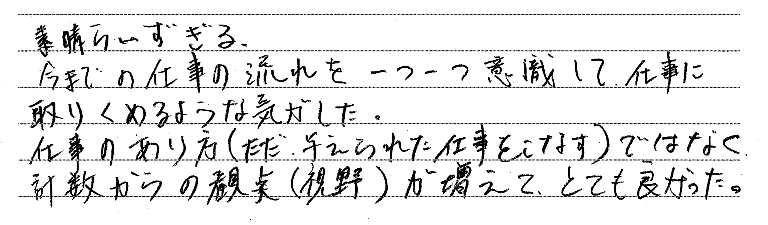 素晴らいずぎる、
今までの仕事の流れを一つ一つ意識して、仕事に
取りくめるような気がした。
仕事のあり方(ただ、与えられた仕事をこなす)ではなく、
計数からの観点(視野)が増えて、とても良かった。